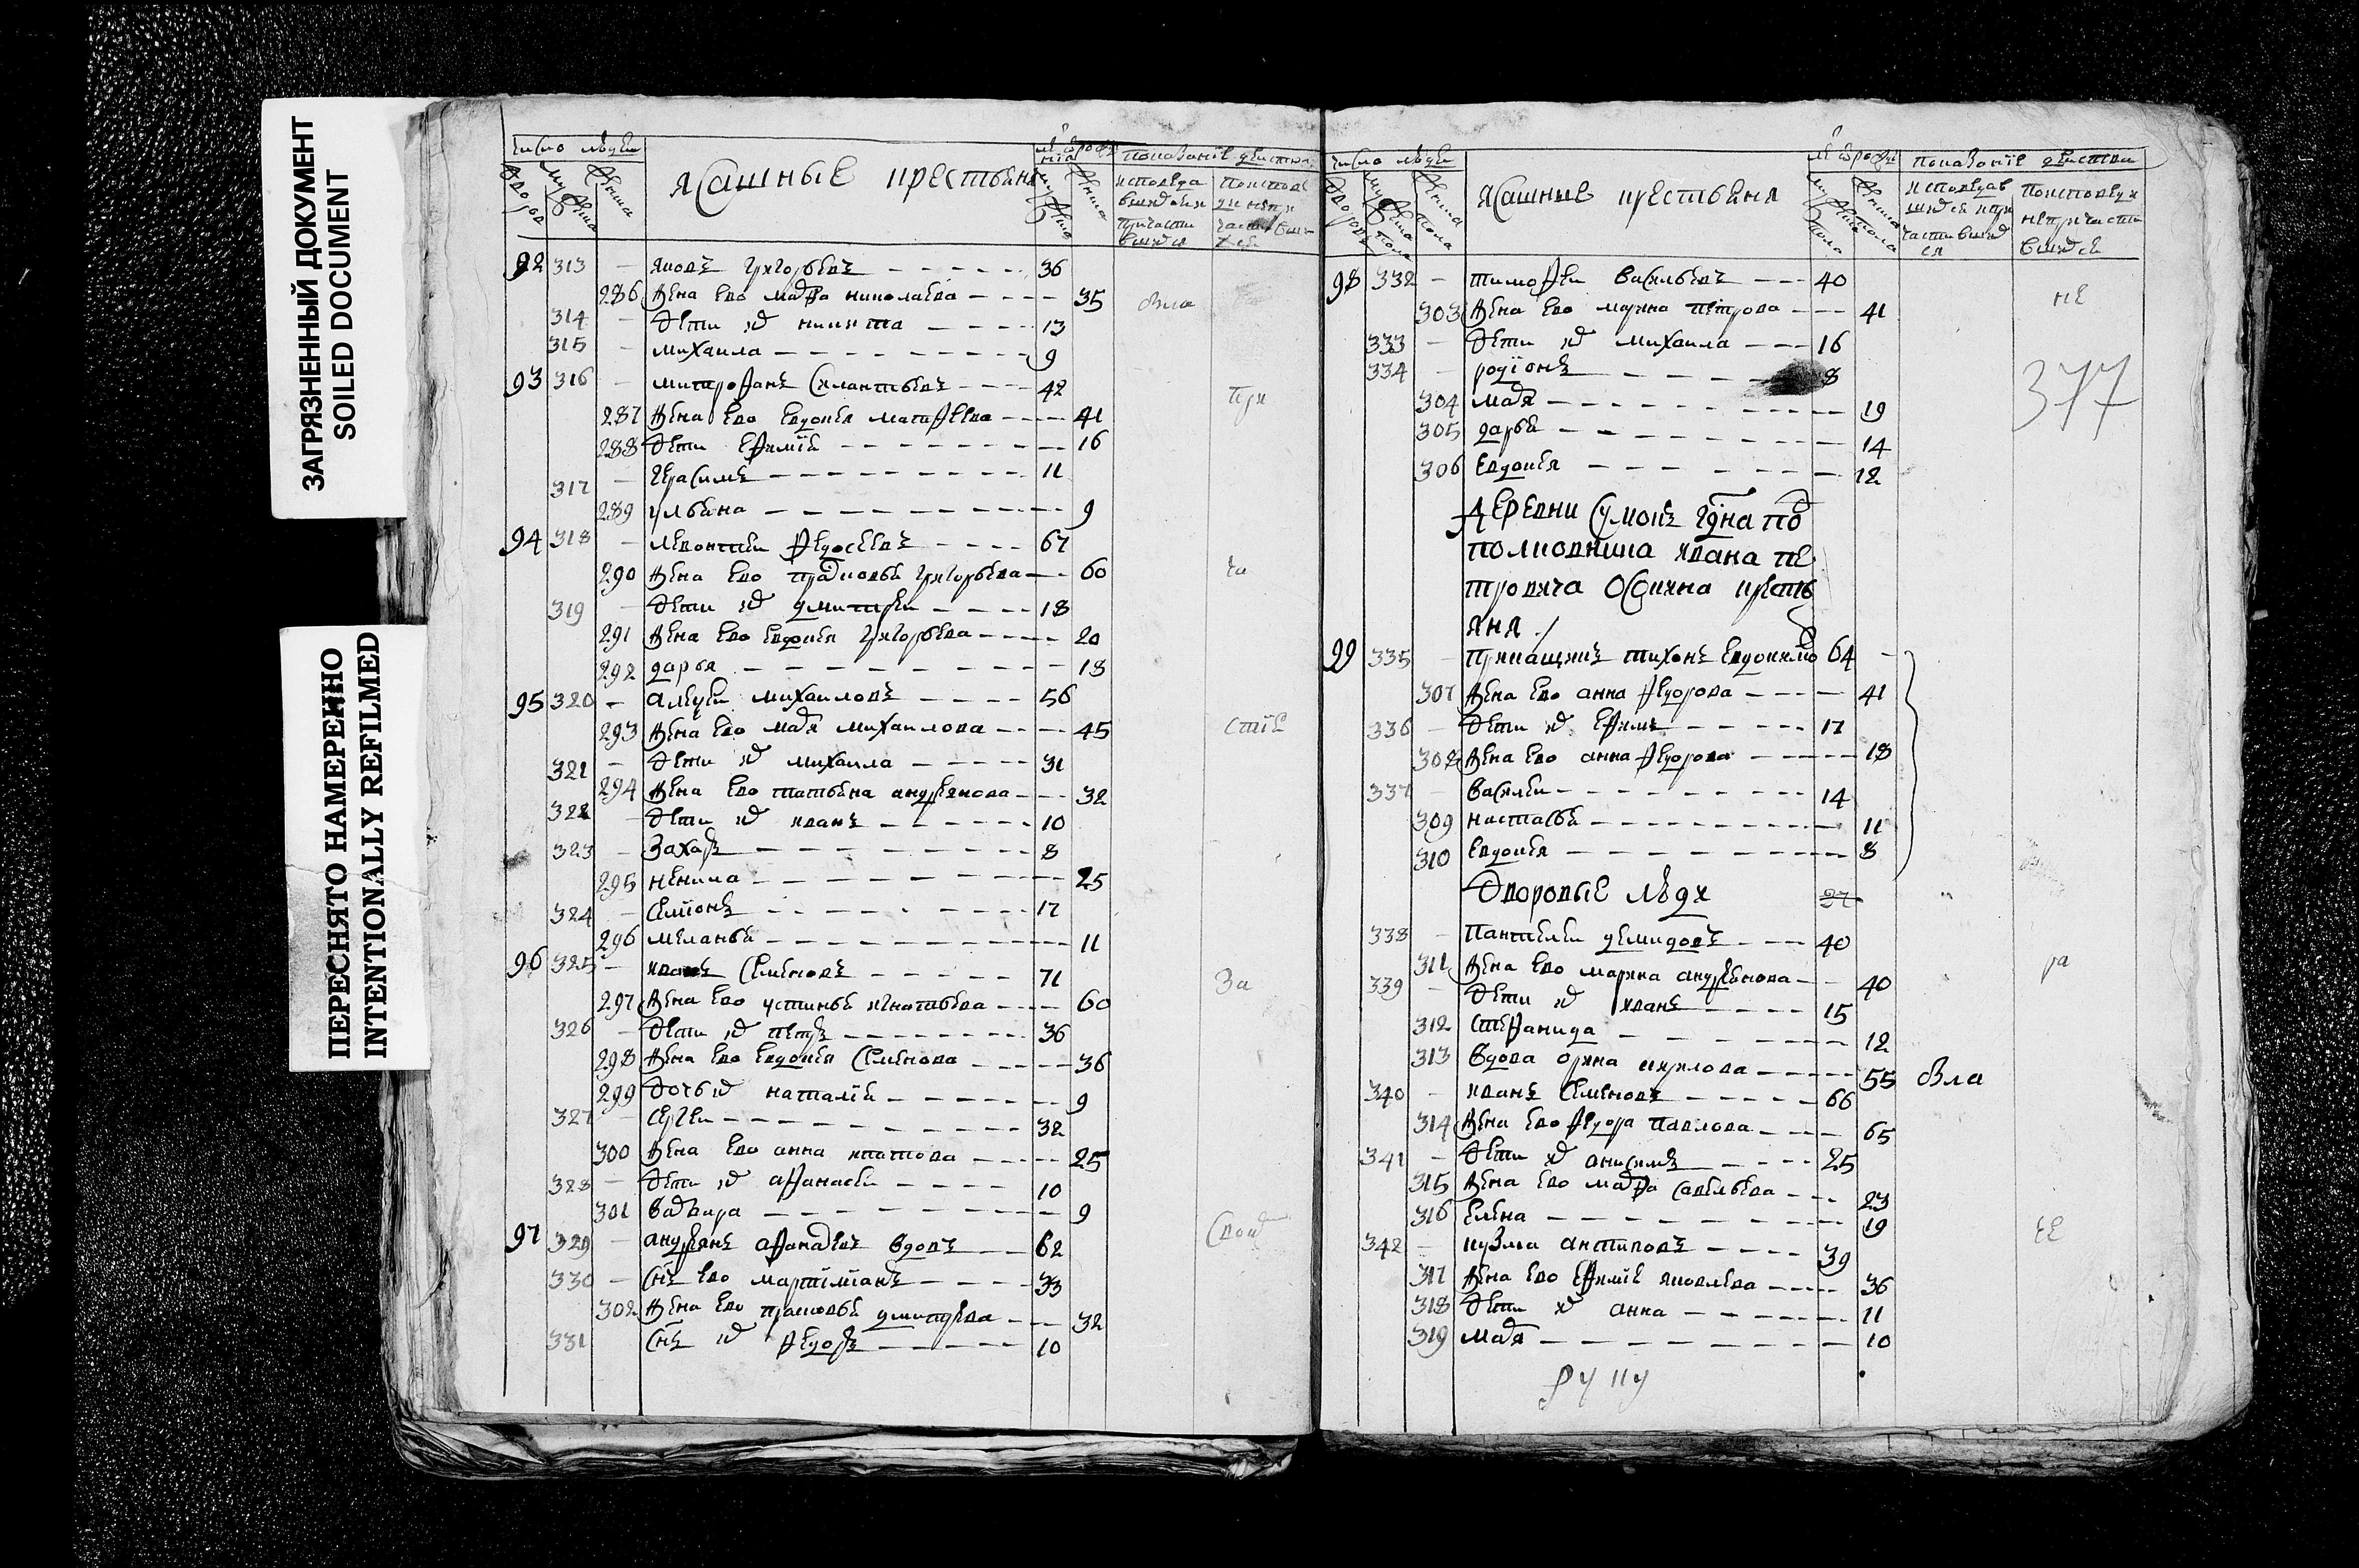 ЗАГРЯЗНЕННЫЙ ДОКУМЕНТ
SOILED DOCUMENT
ПЕРЕСНЯТО НАМЕРЕННО
INTENTIONALLY REFILMED
число людеи
ясашные крестьяня
показанїе действа
92 313 – яковъ григорьевъ 36
286 жена ево марфа николаева 35
314 – дети их никита 13
315 – михаила 9
93 316 – митрофанъ силантьевъ 42
287 жена ево евдокея матфеева 41
288 дети ефимїя 16
317 – герасимъ 11
289 ульяна 9
94 318 – леонтеи федосеевъ 67
290 жена ево прасковья григорьева 60
319 – дети их дмитреи 18
291 жена ево евдокея григорьева 20
292 дарья 18
95 320 – алексеи михаиловъ 56
293 жена ево марья михаилова 45
321 – дети их михаила 31
294 жена ево татьяна андреянова 32
322 – дети их иванъ 10
323 – захаръ 8
295 ненила 25
324 – семїонъ 17
296 меланья 11
96 325 – иванъ семеновъ 71
297 жена ево устинья игнатьева 60
326 – дети их петръ 36
298 жена ево евдокея семенова 36
299 дочь их наталїя 9
327 – сергеи 32
300 жена ево анна ипатова 25
328 – дети их афанасеи 10
301 варвара 9
97 329 – андреянъ афанасьевъ вдовъ 62
330 – снъ ево мартїмїанъ 33
302 жена ево прасковья дмитрева 32
331 снъ их федоръ 10
число людеи
ясашные крестьяня
показанїе действа
98 332 – тимофеи васильевъ 40
303 жена ево марина петрова 41
333 – дети их михаила 16
334 – родїонъ 8
304 марья 19
305 дарья 14
306 евдокея 12
377
деревни сумокъ гдна под
полковника ивана пе
тровича осокина кресть
яня
99 335 – прикащикъ тихонъ евдокимо 64
307 жена ево анна федорова 41
336 – дети их ефимъ 17
308 жена ево анна федорова 18
337 – василеи 14
309 настасья 11
310 евдокея 8
дворовые люди
338 – пантелеи демидовъ 40
311 жена ево марина андреянова 40
339 – дети их иванъ 15
312 степанида 12
313 вдова орина кирилова 55
340 – иванъ семеновъ 66
314 жена ево федора павлова 65
341 – дети их анисимъ 25
315 жена ево марфа савельева 23
316 елена 19
342 – кузма антиповъ 39
317 жена ево ефимїя яковлева 36
318 дети их анна 11
319 марья 10
руку